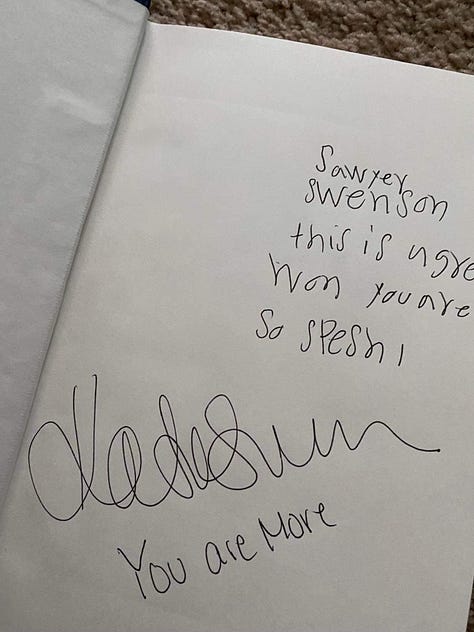 Sawyer
Swenson
this is ugre
Won you are
So SPeshl
You are More